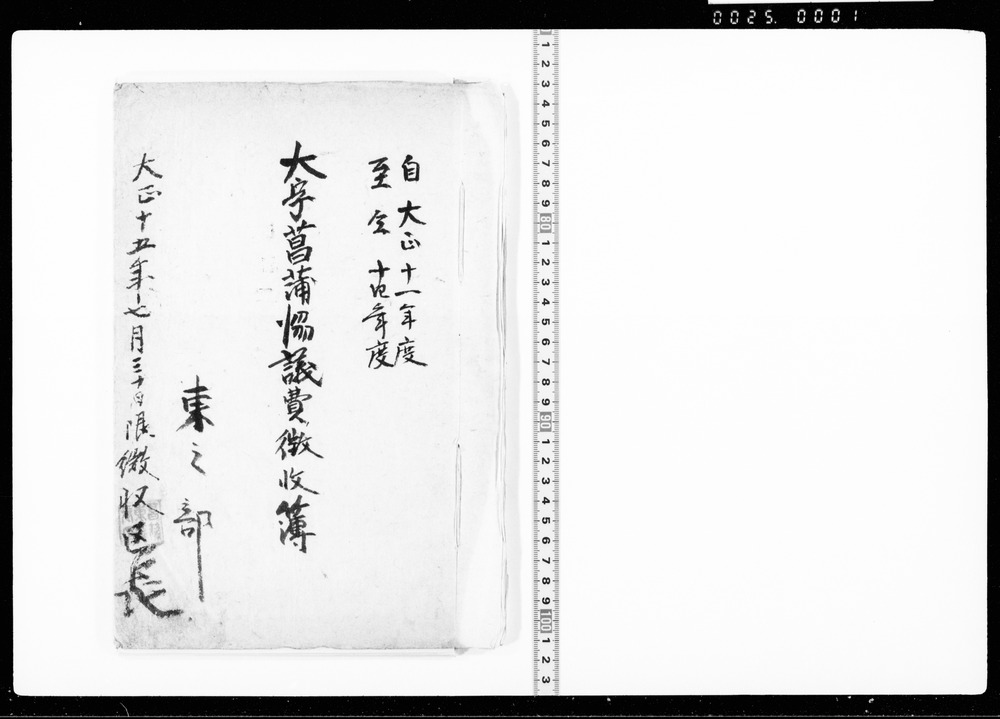 0025.0001
自大正十一年度
至仝十四年度
大字菖蒲協議費徴収簿
東之部
大正十五年七月三十日限徴収区長